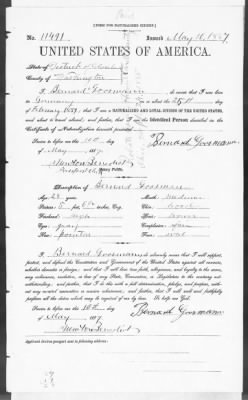 [FORM FOR NATURALIZED CITIZEN.]
No. 11491. Issued May 10, 1887
UNITED STATES OF AMERICA.
State of District of Columbia
County of Washington
I, Bernard Goosmann, do swear that I was born in
Germany on or about the 25th day
of February 1859, that I am a NATURALIZED AND LOYAL CITIZEN OF THE UNITED STATES,
and about to travel abroad, and further, that I am the Identical Person described in the
Certificate of Naturalization herewith presented.
Sworn to before me this 10th day
of May 1887 Bernard Goosmann
Newton Benedict
Notary Public.
Description of Bernard Goosmann
Age: 28 years Mouth: medium
Stature: 5 feet, inches, Eng. Chin:
Forehead: high Hair: brown
Eyes: gray Complexion: fair
Nose: pointed Face: oval
I, Bernard Goosmann, do solemnly swear that I will support,
protect, and defend the Constitution and Government of the United States against all enemies,
whether domestic or foreign; and that I will bear true faith, allegiance, and loyalty to the same,
any ordinance, resolution, or law of any State, Convention, or Legislature to the contrary not-
withstanding; and further, that I do this with a full determination, pledge, and purpose, with-
out any mental reservation or evasion whatsoever; and further, that I will well and faithfully
perform all the duties which may be required of me by law. So help me God.
Sworn to before me this 10th day
of May 1887 Bernard Goosmann
Newton Benedict
Applicant desires passport sent to following address: